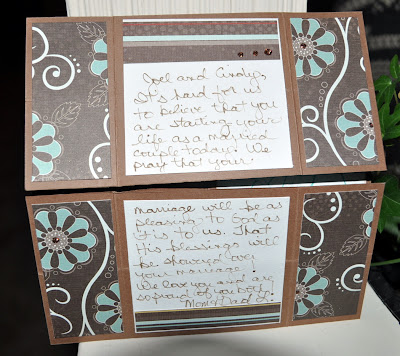 Joel and Cindy,
It's hard for us
to believe that you
are starting your
life as a married
couple today. We
pray that your
marriage will be as
pleasing to God as
it is to us. That
His blessings will
be showered over
your marriage!
We love you and are
so proud of you both,
Mom & Dad